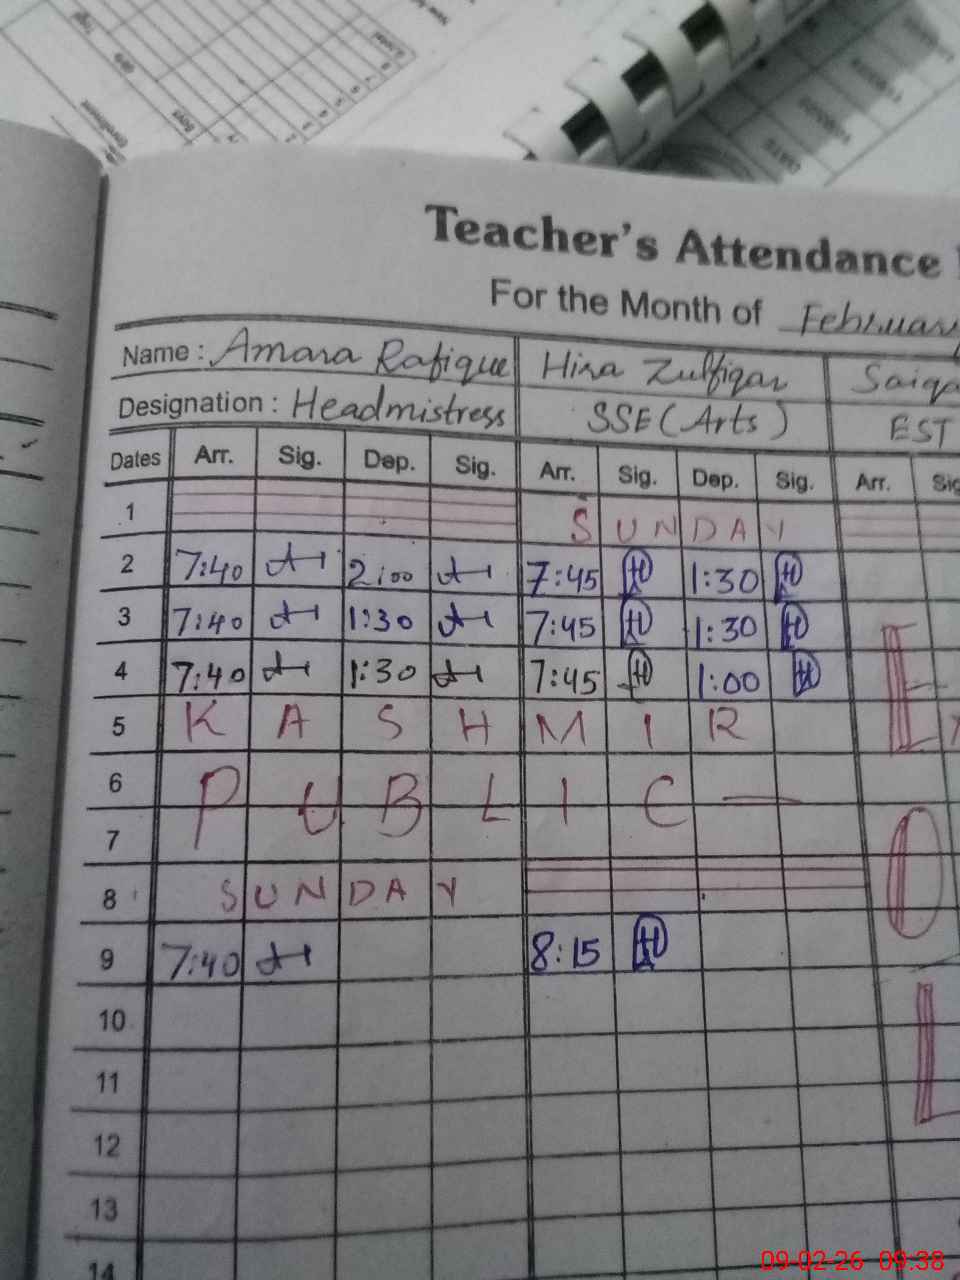 Teacher's Attendance
For the Month of February
Name : Amara Rafique Hira Zulfiqar Saiqa
Designation : Headmistress SSE (Arts) EST
Dates Arr. Sig. Dep. Sig. Arr. Sig. Dep. Sig. Arr. Sig
1 SUNDAY
2 7:40 2:00 7:45 1:30
3 7:40 1:30 7:45 1:30
4 7:40 1:30 7:45 1:00
5 KASHMIR
6 PUBLIC —
7
8 SUNDAY
9 7:40 8:15
10
11
12
13
14
09-02-26 09:38